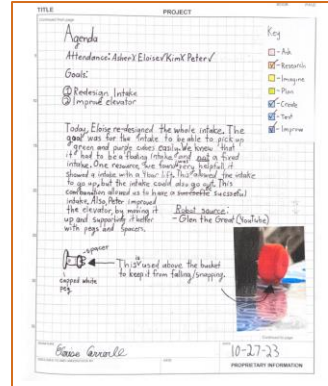 TITLE
PROJECT
Agenda
Key
Attendance: Asher✓ Eloise✓ Kim✗ Peter✓
Ask
Research
Goals:
Imagine
Plan
① Redesign Intake
② Improve elevator
Create
Test
Improve
Today, Eloise re-designed the whole intake. The
goal was for the intake to be able to pick up
green and purple cubes easily. We knew that
it had to be a floating intake and not a fixed
intake. One resource we found very helpful, it
showed a intake with a four lift. This allowed the intake
to go up, but the intake could also go out. This
combination allowed us to have a successful
intake. Also, Peter improved
the elevator, by moving it
up and supporting it better
with pegs and spacers.
Robot source:
- Glen the Great (YouTube)
spacer
This is used above the bucket
to keep it from falling/snapping.
capped white
peg
10-27-23
PROPRIETARY INFORMATION